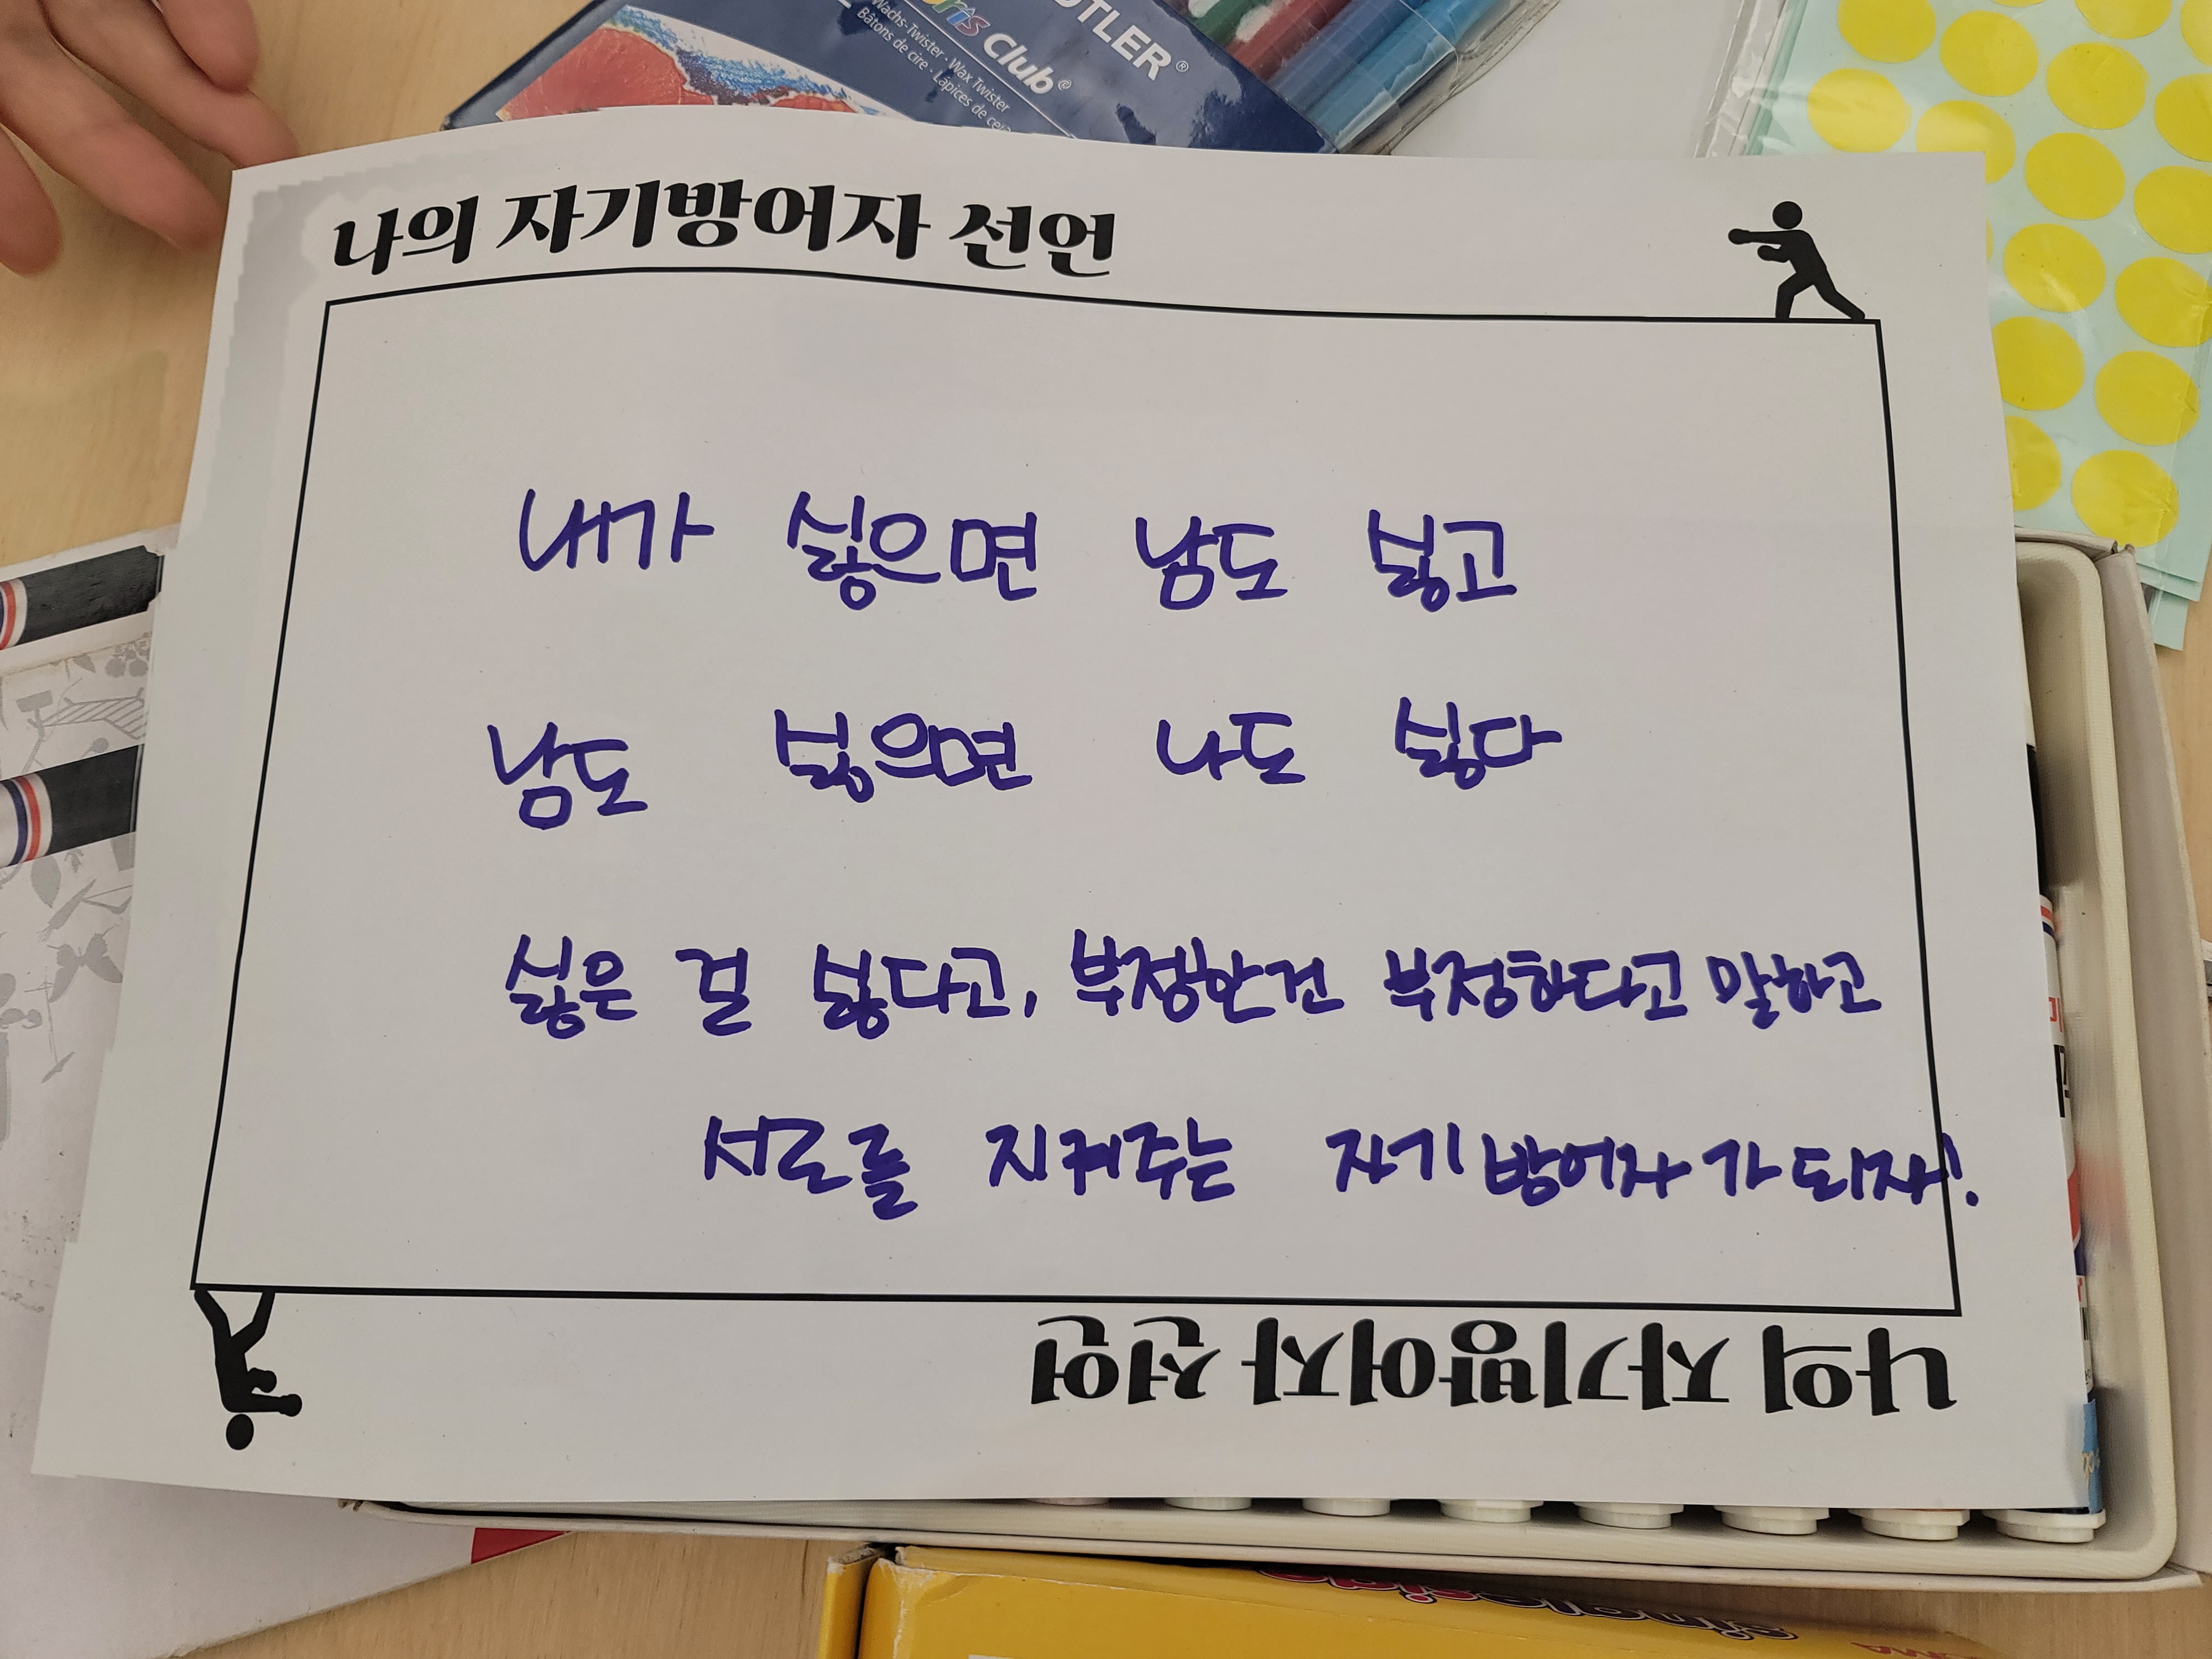 TLER®
Club®
Wachs-Twister · Wax Twister
Bâtons de cire · Lápices de cera
나의 자기방어자 선언
내가 싫으면 남도 싫고
남도 싫으면 나도 싫다
싫은 걸 싫다고, 부정한건 부정하다고 말하고
서로를 지켜주는 자기방어자가 되자!
나의 자기방어자 선언